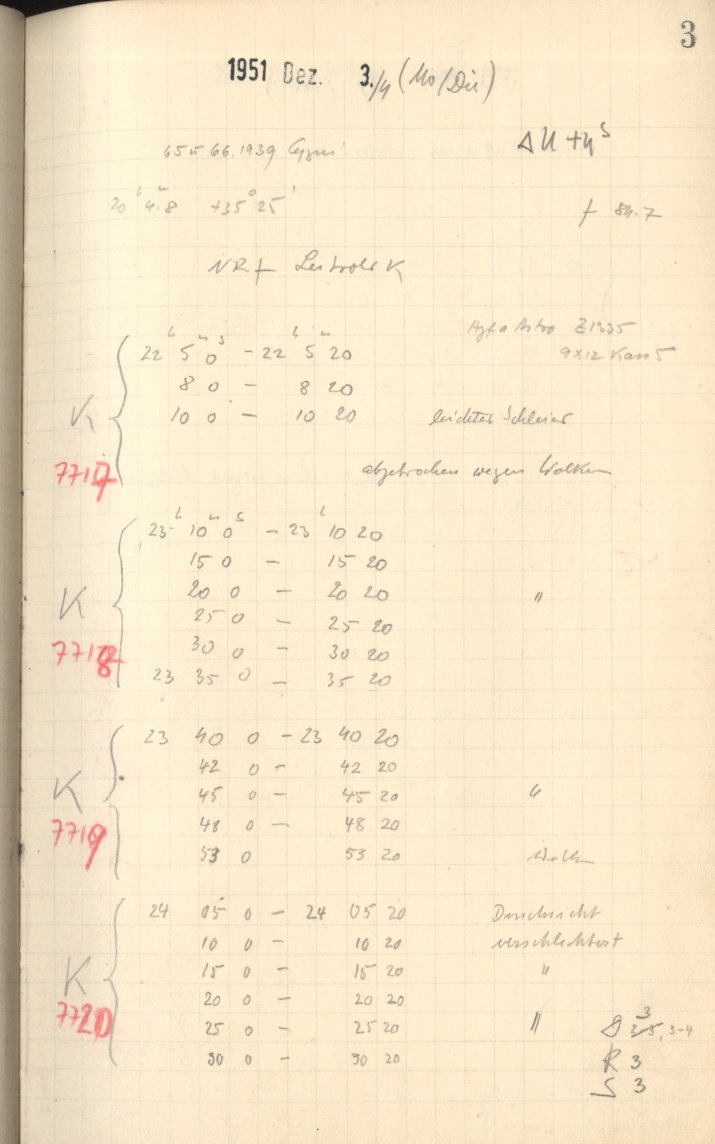 3
1951 Dez. 3./4 (Mo/Die)
ΔU +4ˢ
66.1939 Cygni
20ʰ 4ᵐ.8 +35° 25'
f 84.7
NRf K
22ʰ 5ᵐ 0ˢ - 22ʰ 5ᵐ 20
Astro Z1335
9x12 Kass 5
8 0 - 8 20
K
10 0 - 10 20 leichter Schleier
7717
abgebrochen wegen Wolken
23ʰ 10ᵐ 0ˢ - 23ʰ 10 20
15 0 - 15 20
K
20 0 - 20 20 "
25 0 - 25 20
7718
30 0 - 30 20
23 35 0 - 35 20
23 40 0 - 23 40 20
42 0 - 42 20
K
45 0 - 45 20 "
7719
48 0 - 48 20
53 0 53 20 Wolken
24 05 0 - 24 05 20 Durchsicht
10 0 - 10 20 verschlechtert
K
15 0 - 15 20 "
7720
20 0 - 20 20
25 0 - 25 20 "
3
3-4
30 0 - 30 20
R 3
S 3